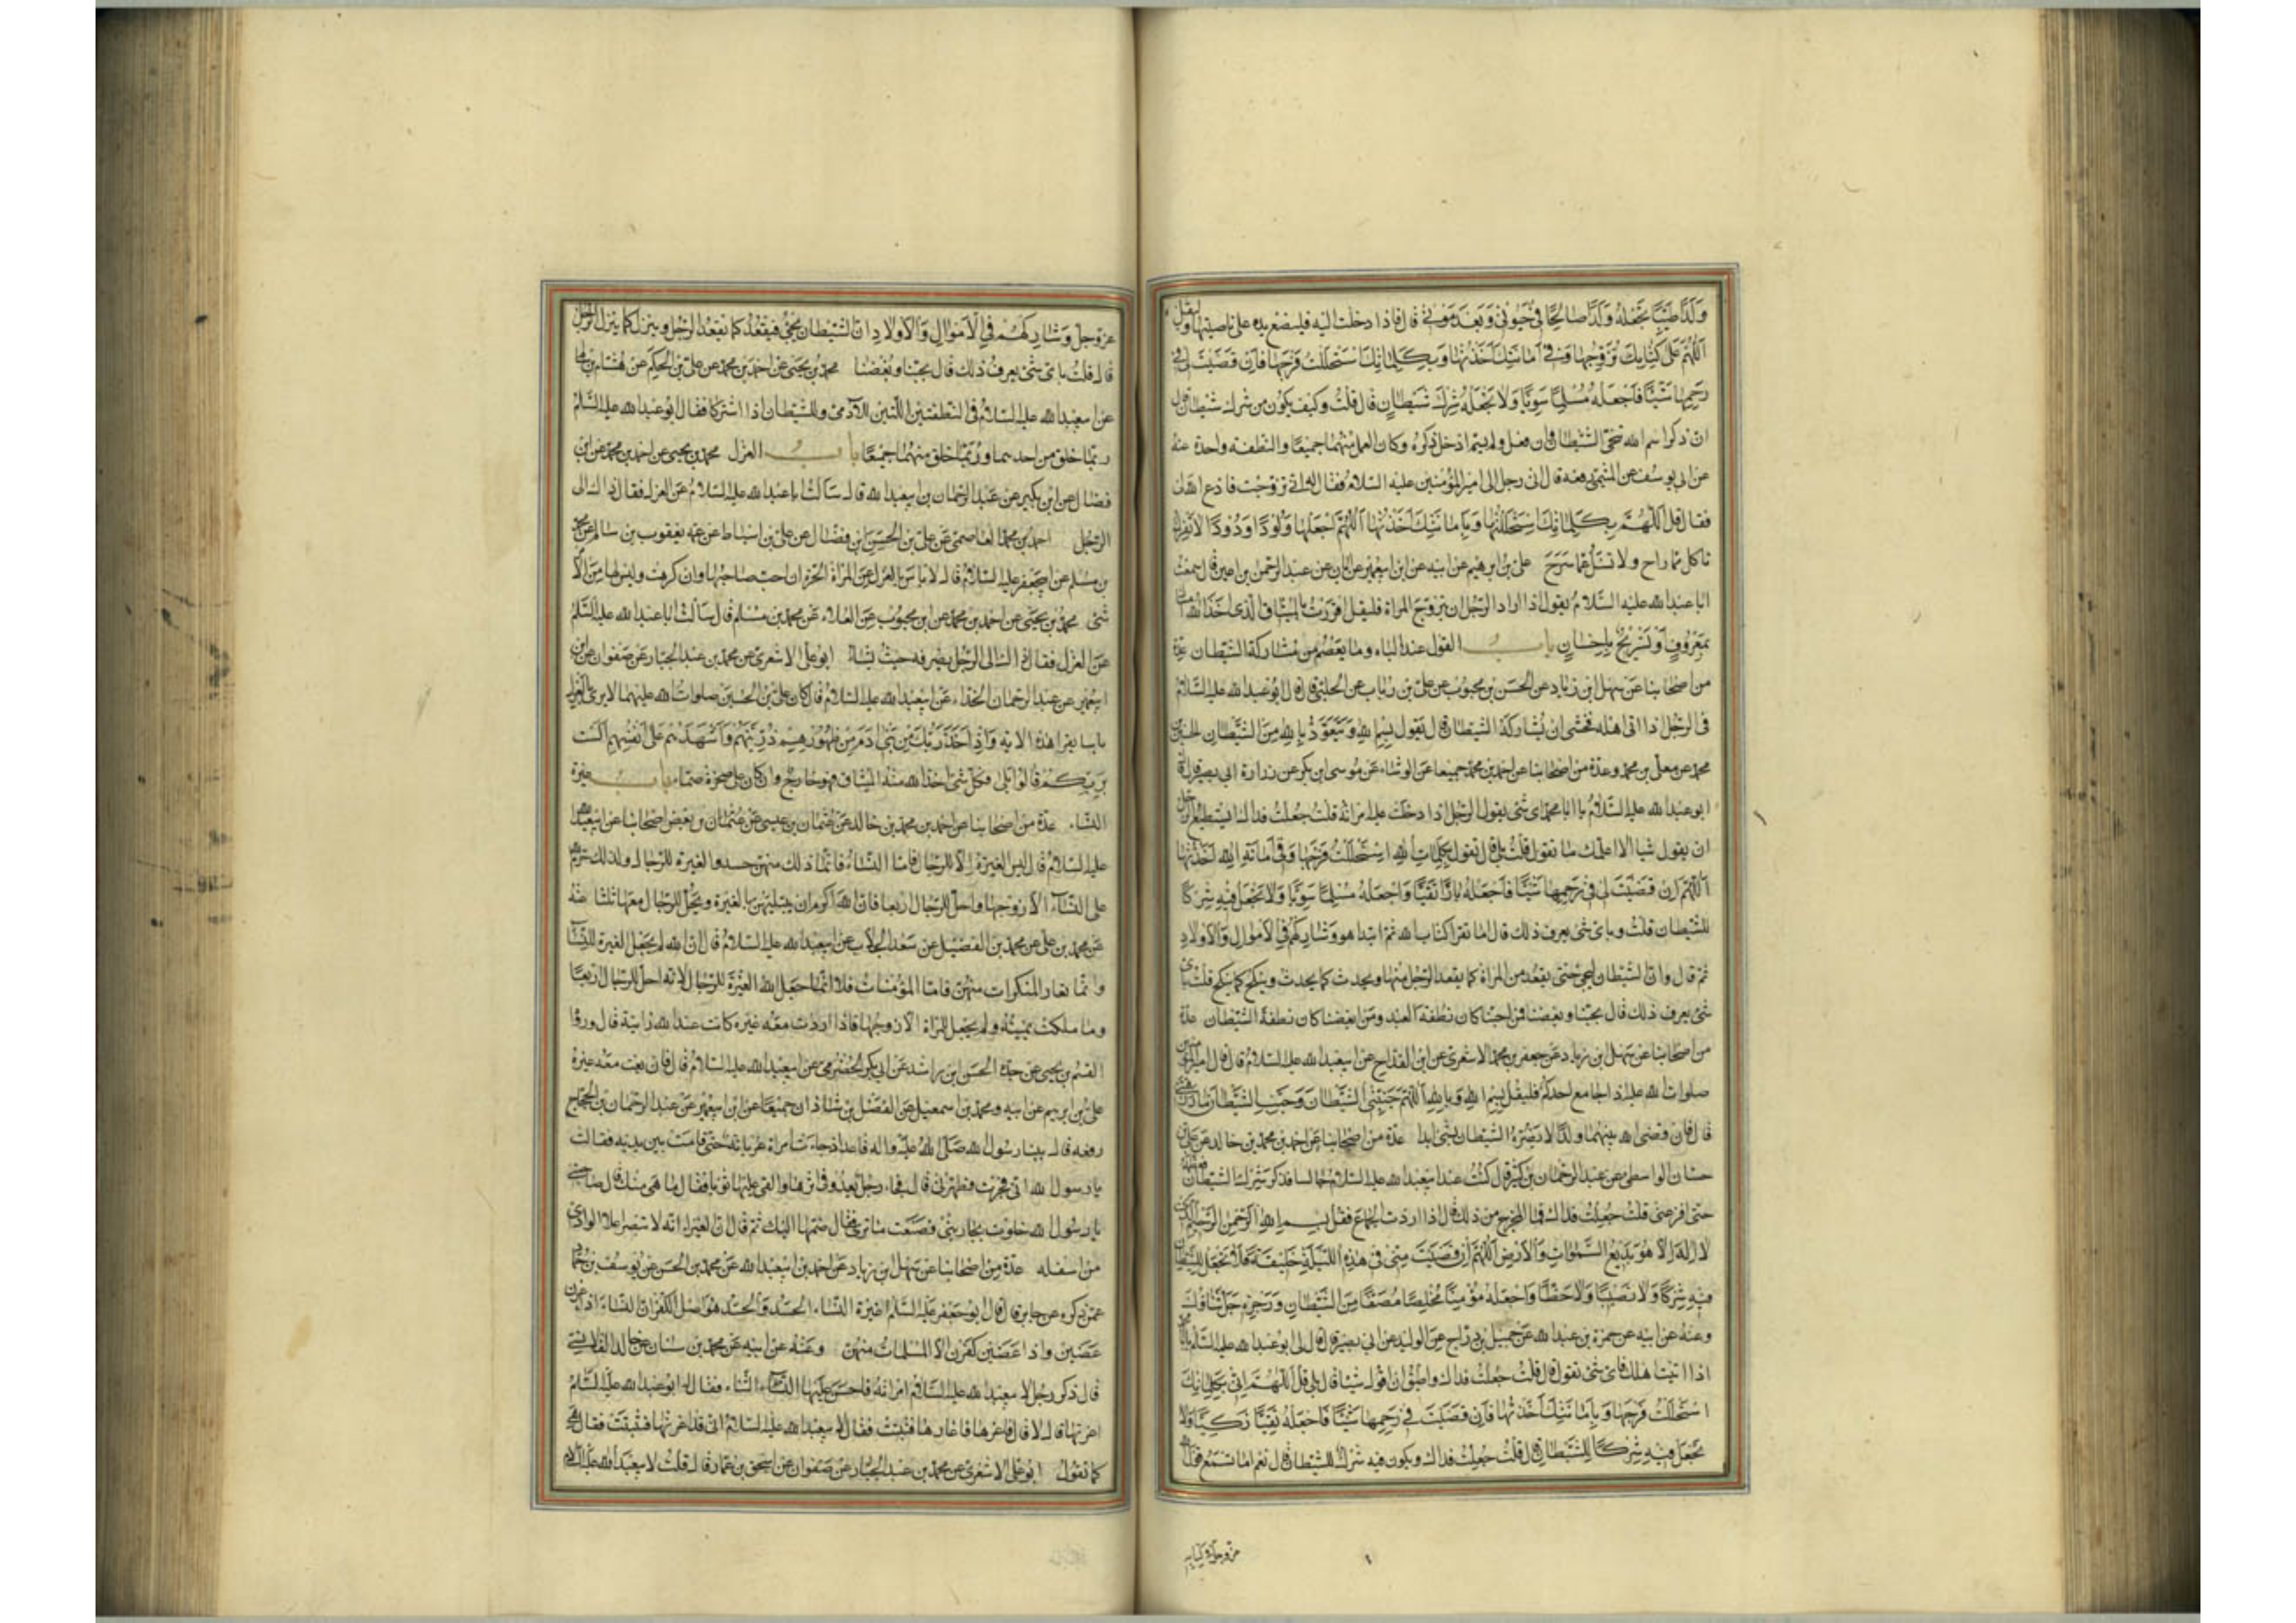 وَلَدًا طَيِّبًا تَجْعَلُهُ وَلَدًا صَالِحًا فِي حَيٰوتِي وَبَعْدَ مَوْتِي قال فاذا دخلت اليه فليضع يده على ناصيتها وليقل
اَللّٰهُمَّ عَلَى كِتَابِكَ تَزَوَّجْتُهَا وَفِي اَمَانَتِكَ اَخَذْتُهَا وَبِكَلِمَاتِكَ اسْتَحْلَلْتُ فَرْجَهَا فَاِنْ قَضَيْتَ لِي فِي
رَحِمِهَا شَيْئًا فَاجْعَلْهُ مُسْلِمًا سَوِيًّا وَلَا تَجْعَلْهُ شِرْكَ شَيْطَانٍ قال قلتُ وكيف يكون من شرك شيطان قال
ان ذكر اسم الله تنحّى الشيطان وان فعل ولم يسمّ ادخل ذكره وكان العمل منهما جميعًا والنطفة واحدة عنه
عن ابى يوسف عن الميثمى رفعه قال اتى رجل الى امير المؤمنين عليه السلام فقال له انى تزوجت فادع الله لى
فقال قل اَللّٰهُمَّ بِكَلِمَاتِكَ اسْتَحْلَلْتُهَا وَبِاَمَانَتِكَ اَخَذْتُهَا اَللّٰهُمَّ اجْعَلْهَا وَلُودًا وَدُودًا لَا تَفْرَكُ
تَأكُلُ مما راح ولا تسئل عمّا سَرَحَ علىّ بن ابرهيم عن ابيه عن ابن ابيعمير عن ابان عن عبد الرحمن بن اعين قال سمعت
ابا عبد الله عليه السلام يقول اذا اراد الرجل ان يتزوّج المرأة فليقل اقررت بالميثاق الذى اخذ الله امساك
بِمَعْرُوفٍ اَوْ تَسْرِيحٌ بِاِحْسَانٍ باب القول عند الباه وما يعصم من مشاركة الشيطان عدّة
من اصحابنا عن سهل بن زياد عن الحسن بن محبوب عن علىّ بن رئاب عن الحلبى قال قال ابو عبد الله عليه السلام
فى الرجل اذا اتى اهله فخشى ان يشاركه الشيطان قال يقول بِسْمِ اللهِ وَيَتَعَوَّذُ بِاللهِ مِنَ الشَّيْطَانِ الحسين بن
محمد عن معلّى بن محمد وعدّة من اصحابنا عن احمد بن محمد جميعا عن الوشاء عن موسى بن بكر عن زرارة ابى بصير قال قال
ابو عبد الله عليه السلام يا ابا محمد اى شئ يقول الرجل اذا دخلت عليه امرأته قلت جعلت فداك ايستطيع الرجل
ان يقول شيئا الا اعلمك ما تقول قلت بلى قال تقول بِكَلِمَاتِ اللهِ اسْتَحْلَلْتُ فَرْجَهَا وَفِي اَمَانَةِ اللهِ اَخَذْتُهَا
اَللّٰهُمَّ اِنْ قَضَيْتَ لِي فِي رَحِمِهَا شَيْئًا فَاجْعَلْهُ بَارًّا تَقِيًّا وَاجْعَلْهُ مُسْلِمًا سَوِيًّا وَلَا تَجْعَلْ فِيهِ شِرْكًا
للشيطان قلت وباى شئ يعرف ذلك قال اما تقرأ كتاب الله ثم ابتدا هو وَشَارِكْهُمْ فِي الْاَمْوَالِ وَالْاَوْلَادِ
ثم قال وان الشيطان ليجئ حتى يقعد من المرأة كما يقعد الرجل منها ويحدث كما يحدث وينكح كما ينكح قلت باى
شئ يعرف ذلك قال بحبّنا وبغضنا فمن احبّنا كان نطفة العبد ومن ابغضنا كان نطفة الشيطان عدّة
من اصحابنا عن سهل بن زياد عن جعفر بن محمد الاشعرى عن ابن القداح عن ابيعبد الله عليه السلام قال قال امير المؤمنين
صلوات الله عليه اذا جامع احدكم فليقل بِسْمِ اللهِ وَبِاللهِ اَللّٰهُمَّ جَنِّبْنِي الشَّيْطَانَ وَجَنِّبِ الشَّيْطَانَ مَا رَزَقْتَنِي
قال فان قضى الله بينهما ولدًا لا يضرّه الشيطان بشئ ابدا عدّة من اصحابنا عن احمد بن محمد بن خالد عن على بن
حسان الواسطى عن عبد الرحمان بن كثير قال كنت عند ابيعبد الله عليه السلام جالسا فذكر شرك الشيطان فعظمه
حتى افزعنى قلت جعلت فداك فما المخرج من ذلك قال اذا اردت الجماع فقل بسم الله الرَّحْمٰنِ الرَّحِيمِ الذى
لَا اِلٰهَ اِلَّا هُوَ بَدِيعُ السَّمٰوَاتِ وَالْاَرْضِ اَللّٰهُمَّ اِنْ قَضَيْتَ مِنِّي فِي هٰذِهِ اللَّيْلَةِ خَلِيفَةً فَلَا تَجْعَلْ لِلشَّيْطَانِ
فِيهِ شِرْكًا وَلَا نَصِيبًا وَلَا حَظًّا وَاجْعَلْهُ مُؤْمِنًا مُخْلِصًا مُصَفًّا مِنَ الشَّيْطَانِ وَرِجْزِهِ جَلَّ ثَنَاؤُكَ
وعنه عن ابيه عن حمزة بن عبد الله عن جميل بن دراج عن الوليد عن ابى بصير قال قال لى ابو عبد الله عليه السلام يا با محمد
اذا اتيت اهلك فاى شئ تقول قال قلت جعلت فداك واطيق ان اقول شيئا قال بلى قل اَللّٰهُمَّ اِنِّي بِكَلِمَاتِكَ
اسْتَحْلَلْتُ فَرْجَهَا وَبِاَمَانَتِكَ اَخَذْتُهَا فَاِنْ قَضَيْتَ فِي رَحِمِهَا شَيْئًا فَاجْعَلْهُ تَقِيًّا زَكِيًّا وَلَا
تَجْعَلْ فِيهِ شِرْكًا لِلشَّيْطَانِ قال قلت جعلت فداك ويكون فيه شرك للشيطان قال نعم اما تسمع قول الله
عزّ وجلّ فى كتابه
عزّ وجلّ وَشَارِكْهُمْ فِي الْاَمْوَالِ وَالْاَوْلَادِ ان الشيطان يجئ فيقعد كما يقعد الرجل وينزل كما ينزل الرجل
قال قلت باى شئ يعرف ذلك قال بحبّنا وبغضنا محمد بن يحيى عن احمد بن محمد عن على بن الحكم عن هشام بن سالم
عن ابيعبد الله عليه السلام فى النطفتين اللتين للآدمى وللشيطان اذا اشتركا فقال ابو عبد الله عليه السلام
ربّما خلق من احدهما وربّما خلق منهما جميعًا باب العزل محمد بن يحيى عن احمد بن محمد عن ابن
فضّال عن ابن بكير عن عبد الرحمان بن ابيعبد الله قال سألت ابا عبد الله عليه السلام عن العزل فقال ذاك الى
الرجل احمد بن محمد العاصمى عن على بن الحسن بن فضّال عن على بن اسباط عن عمّه يعقوب بن سالم عن محمد
بن مسلم عن ابيجعفر عليه السلام قال لا باس بالعزل عن المرأة الحرّة ان احبّ صاحبها وان كرهت وليس لها من الامر
شئ محمد بن يحيى عن احمد بن محمد عن ابن محبوب عن العلاء عن محمد بن مسلم قال سألت ابا عبد الله عليه السلم
عن العزل فقال ذاك الى الرجل يصرفه حيث يشاء ابو على الاشعرى عن محمد بن عبد الجبار عن صفوان عن ابن
ابيعمير عن عبد الرحمان الحذاء عن ابيعبد الله عليه السلام قال كان على بن الحسين صلوات الله عليهما لا يرى بالعزل
باسا يقرأ هذه الاية وَاِذْ اَخَذَ رَبُّكَ مِنْ بَنِي اٰدَمَ مِنْ ظُهُورِهِمْ ذُرِّيَّتَهُمْ وَاَشْهَدَهُمْ عَلَى اَنْفُسِهِمْ اَلَسْتُ
بِرَبِّكُمْ قَالُوا بَلَى فكل شئ اخذ الله منه الميثاق فهو خارج وان كان على صخرة صمّاء باب غيرة
النساء عدّة من اصحابنا عن احمد بن محمد بن خالد عن عثمان بن عيسى عن عثمان بن بعض اصحابنا عن ابيعبد الله
عليه السلام قال ليس الغيرة الا للرجال فامّا النساء فانّما ذلك منهنّ حسد والغيرة للرجال ولذلك حرّم الله
على النساء الا زوجها واحلّ للرجال اربعا فان الله اكرم ان يبتليهنّ بالغيرة ويحلّ للرجال معها ثلثا عنه
عن محمد بن على عن محمد بن الفضيل عن سعد الجلاب عن ابيعبد الله عليه السلام قال ان الله لم يجعل الغيرة للنساء
وانّما تغار المنكرات منهنّ فامّا المؤمنات فلا انّما جعل الله الغيرة للرجال لانه احلّ للرجال اربعا
وما ملكت يمينه ولم يجعل للمرأة الا زوجها فاذا ارادت معه غيره كانت عند الله زانية قال ورواه
القسم بن يحيى عن جدّه الحسن بن راشد عن ابى بكر الحضرمى عن ابيعبد الله عليه السلام قال فان بغت معه غيره
على بن ابرهيم عن ابيه ومحمد بن اسمعيل عن الفضل بن شاذان جميعًا عن ابن ابيعمير عن عبد الرحمان بن الحجاج
رفعه قال بينا رسول الله صلى الله عليه واله قاعد اذ جاءت امرأة عريانة حتى قامت بين يديه فقالت
يا رسول الله انى فجرت فطهّرنى قال فجاء رجل يعدو فى اثرها والقى عليها ثوبا فقال ما هى منك قال صاحبتى
يا رسول الله خلوت بجاريتى فصنعت ما ترى فقال ضمّها اليك ثم قال ان الغيراء لا تبصر اعلا الوادى
من اسفله عدّة من اصحابنا عن سهل بن زياد عن احمد بن ابيعبد الله عن محمد بن الحسن عن يوسف بن حماد
عمّن ذكره عن جابر قال قال ابو جعفر عليه السلم غيرة النساء الحسد والحسد هو اصل الكفر ان النساء اذا غرن
غضبن واذا غضبن كفرن الا المسلمات منهنّ وعنه عن ابيه عن محمد بن سنان عن خالد القلانسى
قال ذكر رجل لابيعبد الله عليه السلام امرأته فاحسن عليها الثناء فقال له ابو عبد الله عليه السلم
اغرتها قال لا قال فاغرها فاغارها فثبتت فقال لابيعبد الله عليه السلام انى قد اغرتها فثبتت فقال هى
كما تقول ابو على الاشعرى عن محمد بن عبد الجبار عن صفوان عن اسحق بن عمار قال قلت لابيعبد الله عليه السلام